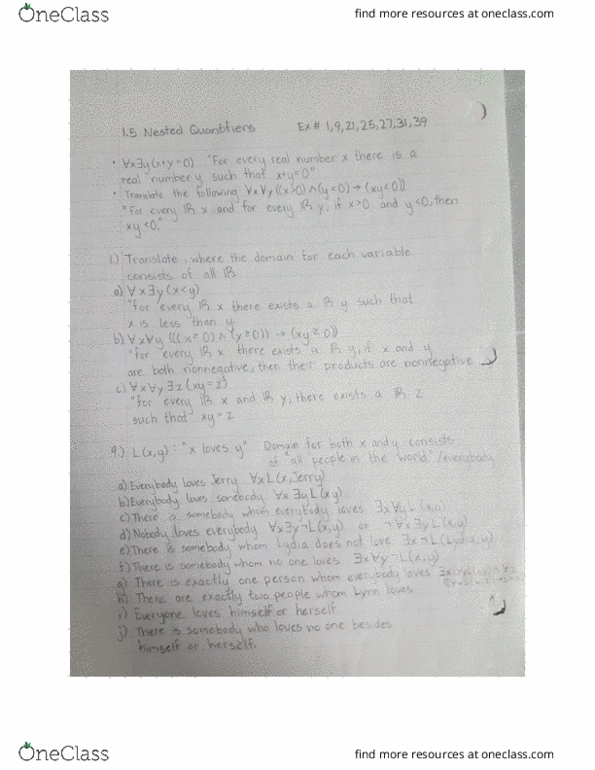 OneClass
find more resources at oneclass.com
1.5 Nested Quantifiers Ex# 1,9,21,25,27,31,39
• ∀x∃y(x+y=0) "For every real number x there is a
real number y such that x+y=0"
• Translate the following ∀x∀y((x>0)∧(y<0)→(xy<0))
"For every ℝ x and for every ℝ y, if x>0 and y<0, then
xy<0."
1.) Translate, where the domain for each variable
consists of all ℝ
a) ∀x∃y(x<y)
"for every ℝ x there exists a ℝ y such that
x is less than y
b) ∀x∀y(((x≥0)∧(y≥0))→(xy≥0))
"for every ℝ x there exists a ℝ y, if x and y
are both nonnegative, then their products are nonnegative
c) ∀x∀y∃z(xy=z)
"for every ℝ x and ℝ y, there exists a ℝ z
such that xy=z
9.) L(x,y): "x loves y" Domain for both x and y consists
of "all people in the world"/everybody
a) Everybody loves Jerry ∀xL(x,Jerry)
b) Everybody loves somebody ∀x∃yL(x,y)
c) There is somebody whom everybody loves ∃x∀yL(x,y)
d) Nobody loves everybody ∀x∃y¬L(x,y) or ¬∀x∃yL(x,y)
e) There is somebody whom Lydia does not love ∃x¬L(Lydia,y)
f) There is somebody whom no one loves ∃x∀y¬L(x,y)
g) There is exactly one person whom everybody loves
h) There are exactly two people whom Lynn loves
i) Everyone loves himself or herself
j) There is somebody who loves no one besides
himself or herself.
OneClass
find more resources at oneclass.com